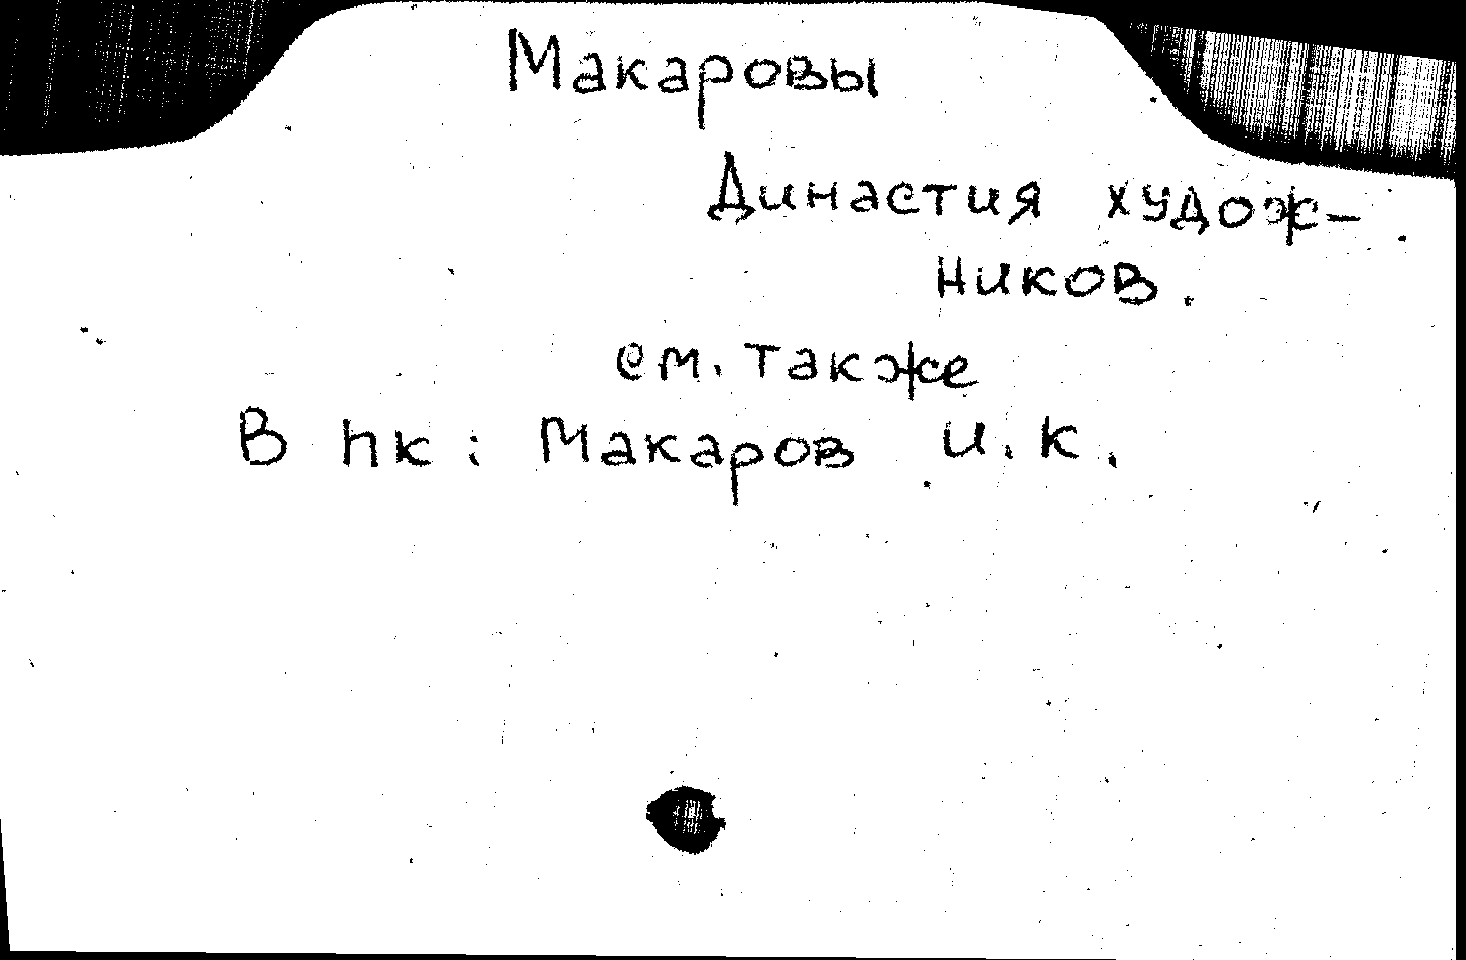 Макаровы
Династия худож-
ников.
см. также
В пк: Макаров И.К.